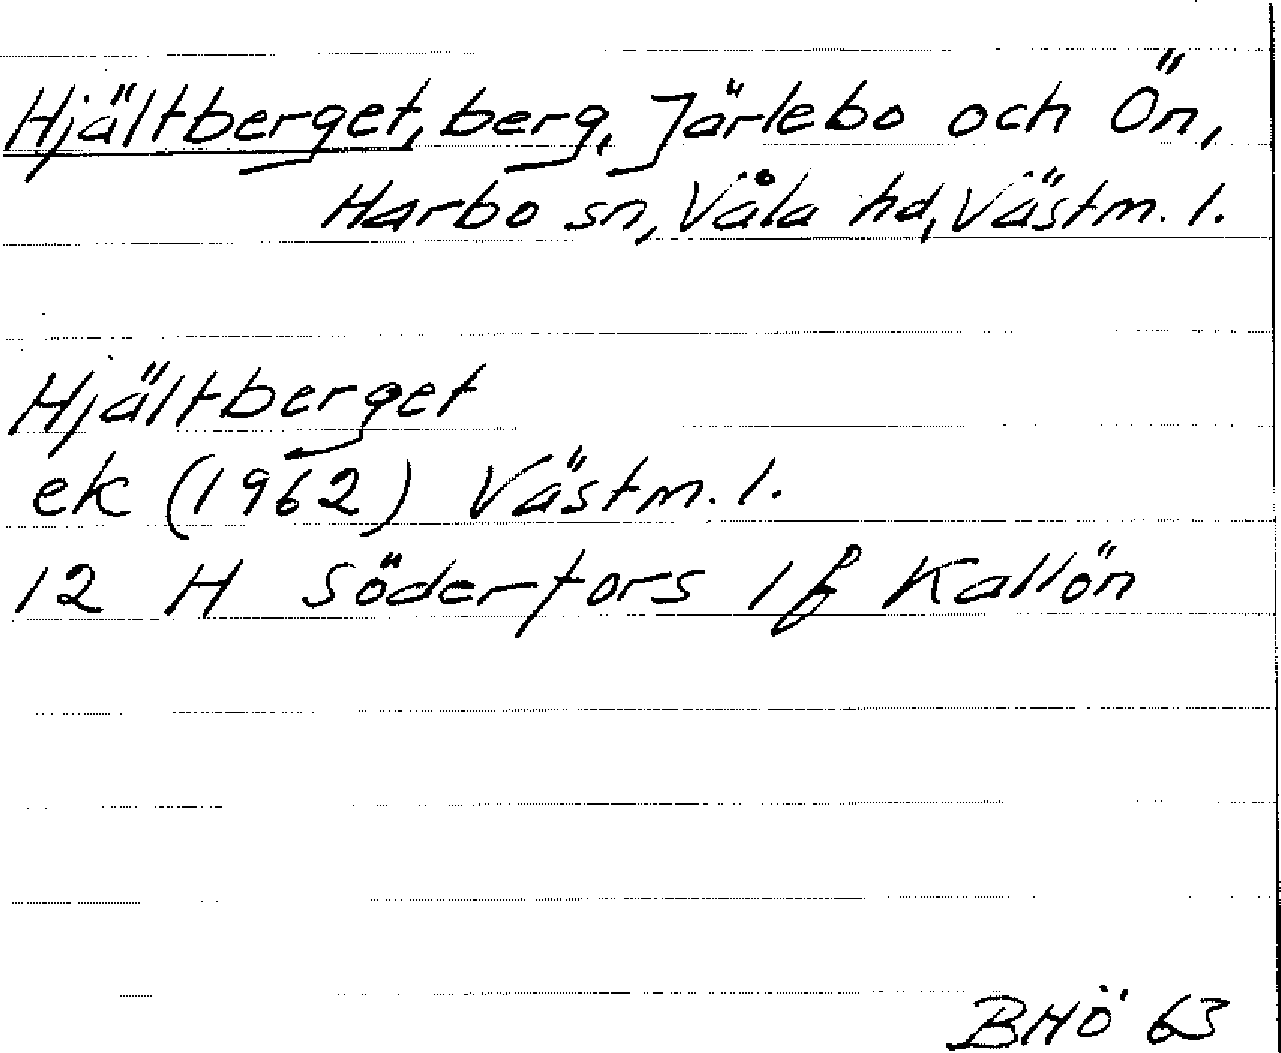 Hjältberget, berg, Järlebo och Ön,
Harbo sn, Våla hd, Västm. l.
Hjältberget
ek (1962) Västm. l.
12 H Söderfors 1 f Kallön
BHÖ 63